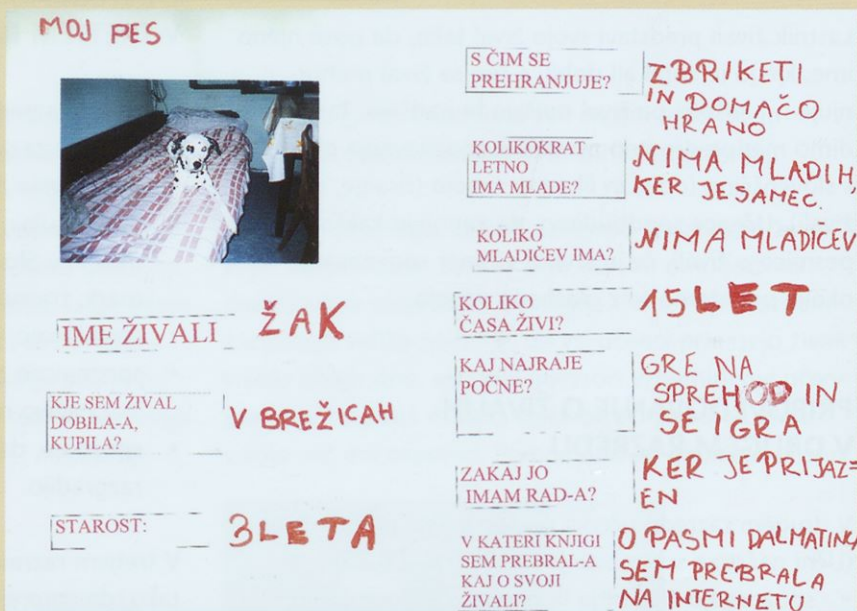 MOJ PES
IME ŽIVALI
ŽAK
KJE SEM ŽIVAL
DOBILA-A,
KUPILA?
V BREŽICAH
STAROST:
3 LETA
S ČIM SE
PREHRANJUJE?
Z BRIKETI
IN DOMAČO
HRANO
KOLIKOKRAT
LETNO
IMA MLADE?
NIMA MLADIH,
KER JE SAMEC.
KOLIKO
MLADIČEV IMA?
NIMA MLADIČEV
KOLIKO
ČASA ŽIVI?
15 LET
KAJ NAJRAJE
POČNE?
GRE NA
SPREHOD IN
SE IGRA
ZAKAJ JO
IMAM RAD-A?
KER JE PRIJAZ=
EN
V KATERI KNJIGI
SEM PREBRAL-A
KAJ O SVOJI
ŽIVALI?
O PASMI DALMATINCA
SEM PREBRALA
NA INTERNETU